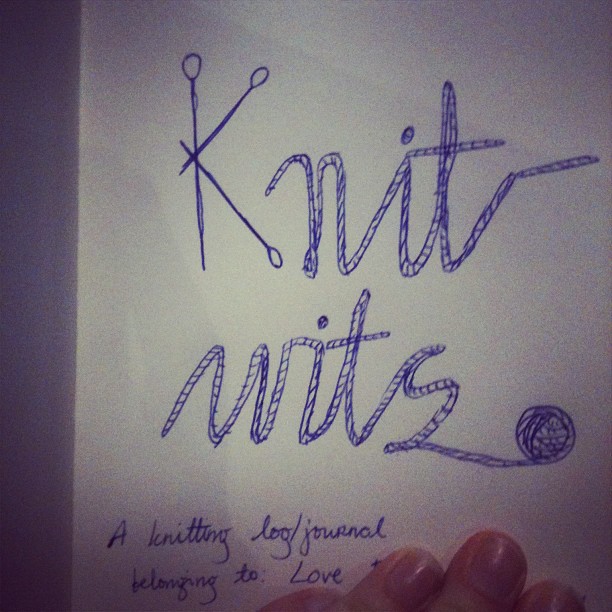 Knit
wits
A knitting log/journal
belonging to: Love